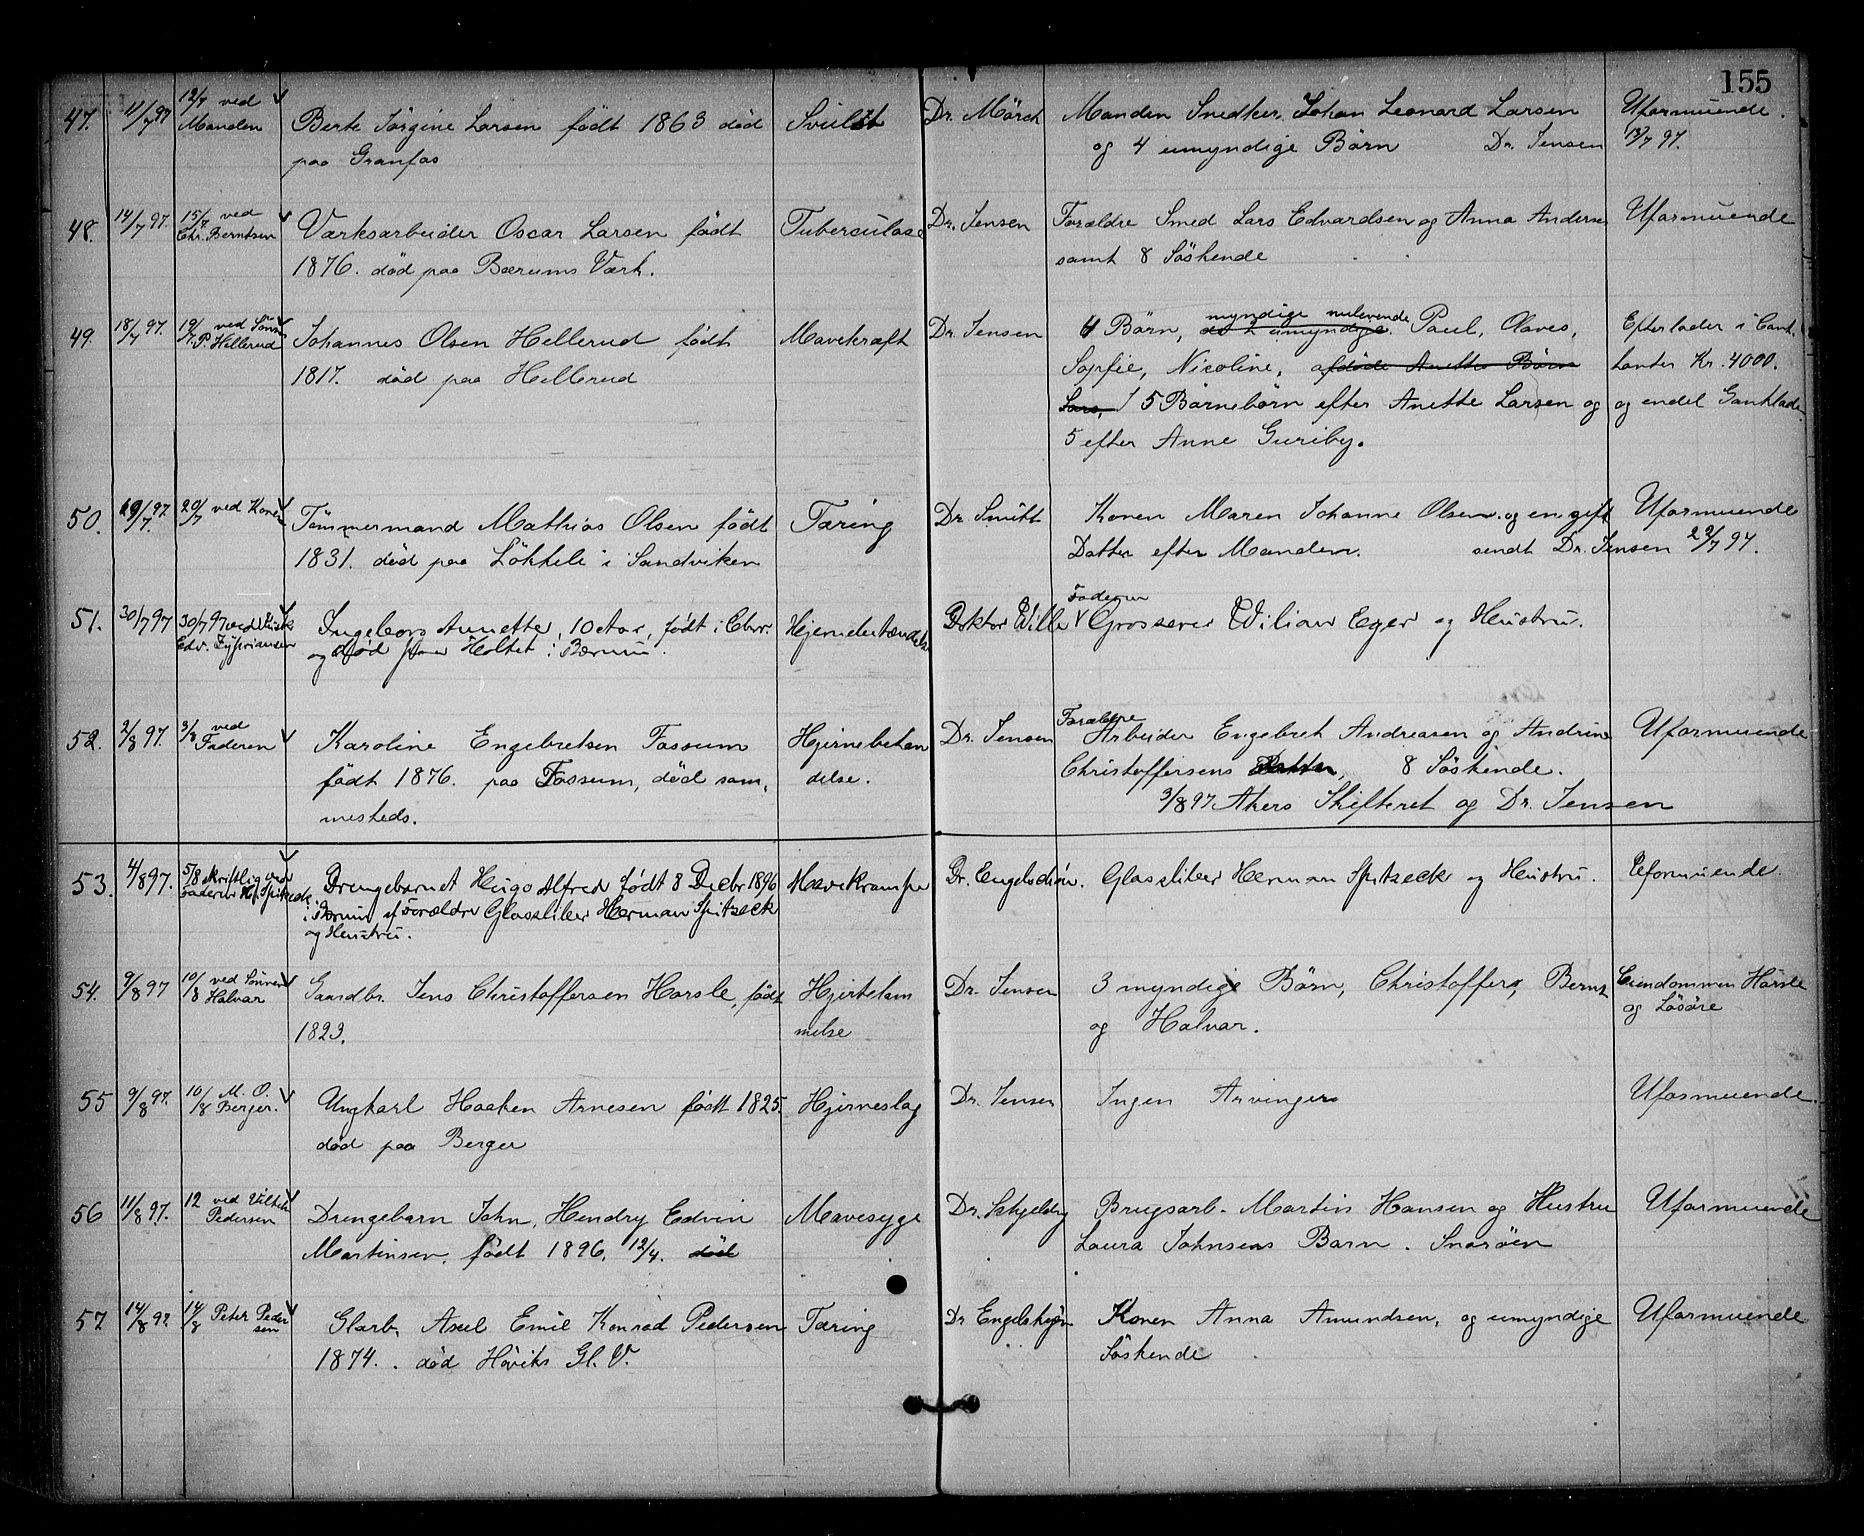 155
47. 11/7 97 12/7 ved Manden Berte Jørgine Larsen født 1863 død Dr. Mörch Manden Snedker Johan Leonard Larsen Uformuende.
paa Granfos og 4 umyndige Børn Dr. Jensen 13/7 97.
48. 14/7 97. 15/7 ved Chr. Berntsen Værksarbeider Oscar Larsen født Tuberculose Dr. Jensen Forældre Smed Lars Edvardsen og Anna Anderse Uformuende
1876. død paa Bærums Værk. samt 8 Söskende
49. 18/7 97. 19/7 ved Sönnen P. Hellerud Johannes Olsen Hellerud født Mavekræft Dr. Jensen 4 Børn, myndige nulevende Paul, Olaves, Efterlader i Cont.
1817. død paa Hellerud Sopfie, Nicoline, afdøde Anettes Børn hanter Kr. 4000.
Lars, 5 Børnebørn efter Anette Larsen og og endel
5 efter Anne Guriby.
50. 19/7 97 20/7 ved Konen Tømmermand Mathias Olsen født Tæring Dr Smitt Konen Maren Johanne Olsen og en gift Uformuende
1831. død paa Løkkeli i Sandviken Datter efter Manden. sendt Dr. Jensen 22/7 97.
51. 30/7 97 30/7 97 ved Edv. Zypriansen Ingeborg Anette, 10 Aar, født i Chr. Doktor Wille Faderen Grosserer Wiliam Eger og Heustru.
og død paa Holtet i Bærum.
52. 2/8 97. 3/8 ved Faderen Karoline Engebretsen Fossum Hjernebetæn Dr. Jensen Forældre Arbeider Engebret Andreasen og Andrine Uformuende
født 1876. paa Fossum, død sam, delse. Christoffersens Datter, 8 Söskende.
mesteds. 3/8 97 Akers Skifteret og Dr. Jensen
53. 4/8 97. 5/8 skriftlig ved Faderen Drengebarnet Heigo Alfred født 8 Decbr 1896 Mavekrampe Glassliber Herman Spitzeck og Heustru. Uformuende.
i Bærum af Forældre Glassliber Herman Spitzeck
og Heustru.
54. 9/8 97 10/8 ved Sönnen Halvar Gaardbr. Jens Christoffersen Horsle, født Hjertelam Dr. Jensen 3 myndige Børn, Christoffer, Bernt Eiendommen Horsle
1823. melse og Halvar. og Løsøre
55 9/8 97. 10/8 M. O. Berger. Ungkarl Haaken Arnesen født 1825. Hjerneslag Dr. Jensen Ingen Arvinger Uformuende.
død paa Berger
56 11/8 97. 12 ved Vilhelm Pedersen Drengebarn John, Hendry Edvin Mavesyge Dr. Schjelderup Brugsarb. Martin Hansen og Hustru Uformuende
Martinsen, født 1896, 12/4. død Laura Johnsens Barn. Snarøen
57 14/8 97 14/8 Peter Pedersen Glarb. Axel Emil Konrad Pedersen Tæring Dr Engelskjøn Konen Anna Amundsen, og umyndige Uformuende
1874. død Høviks Gl. V. Söskende